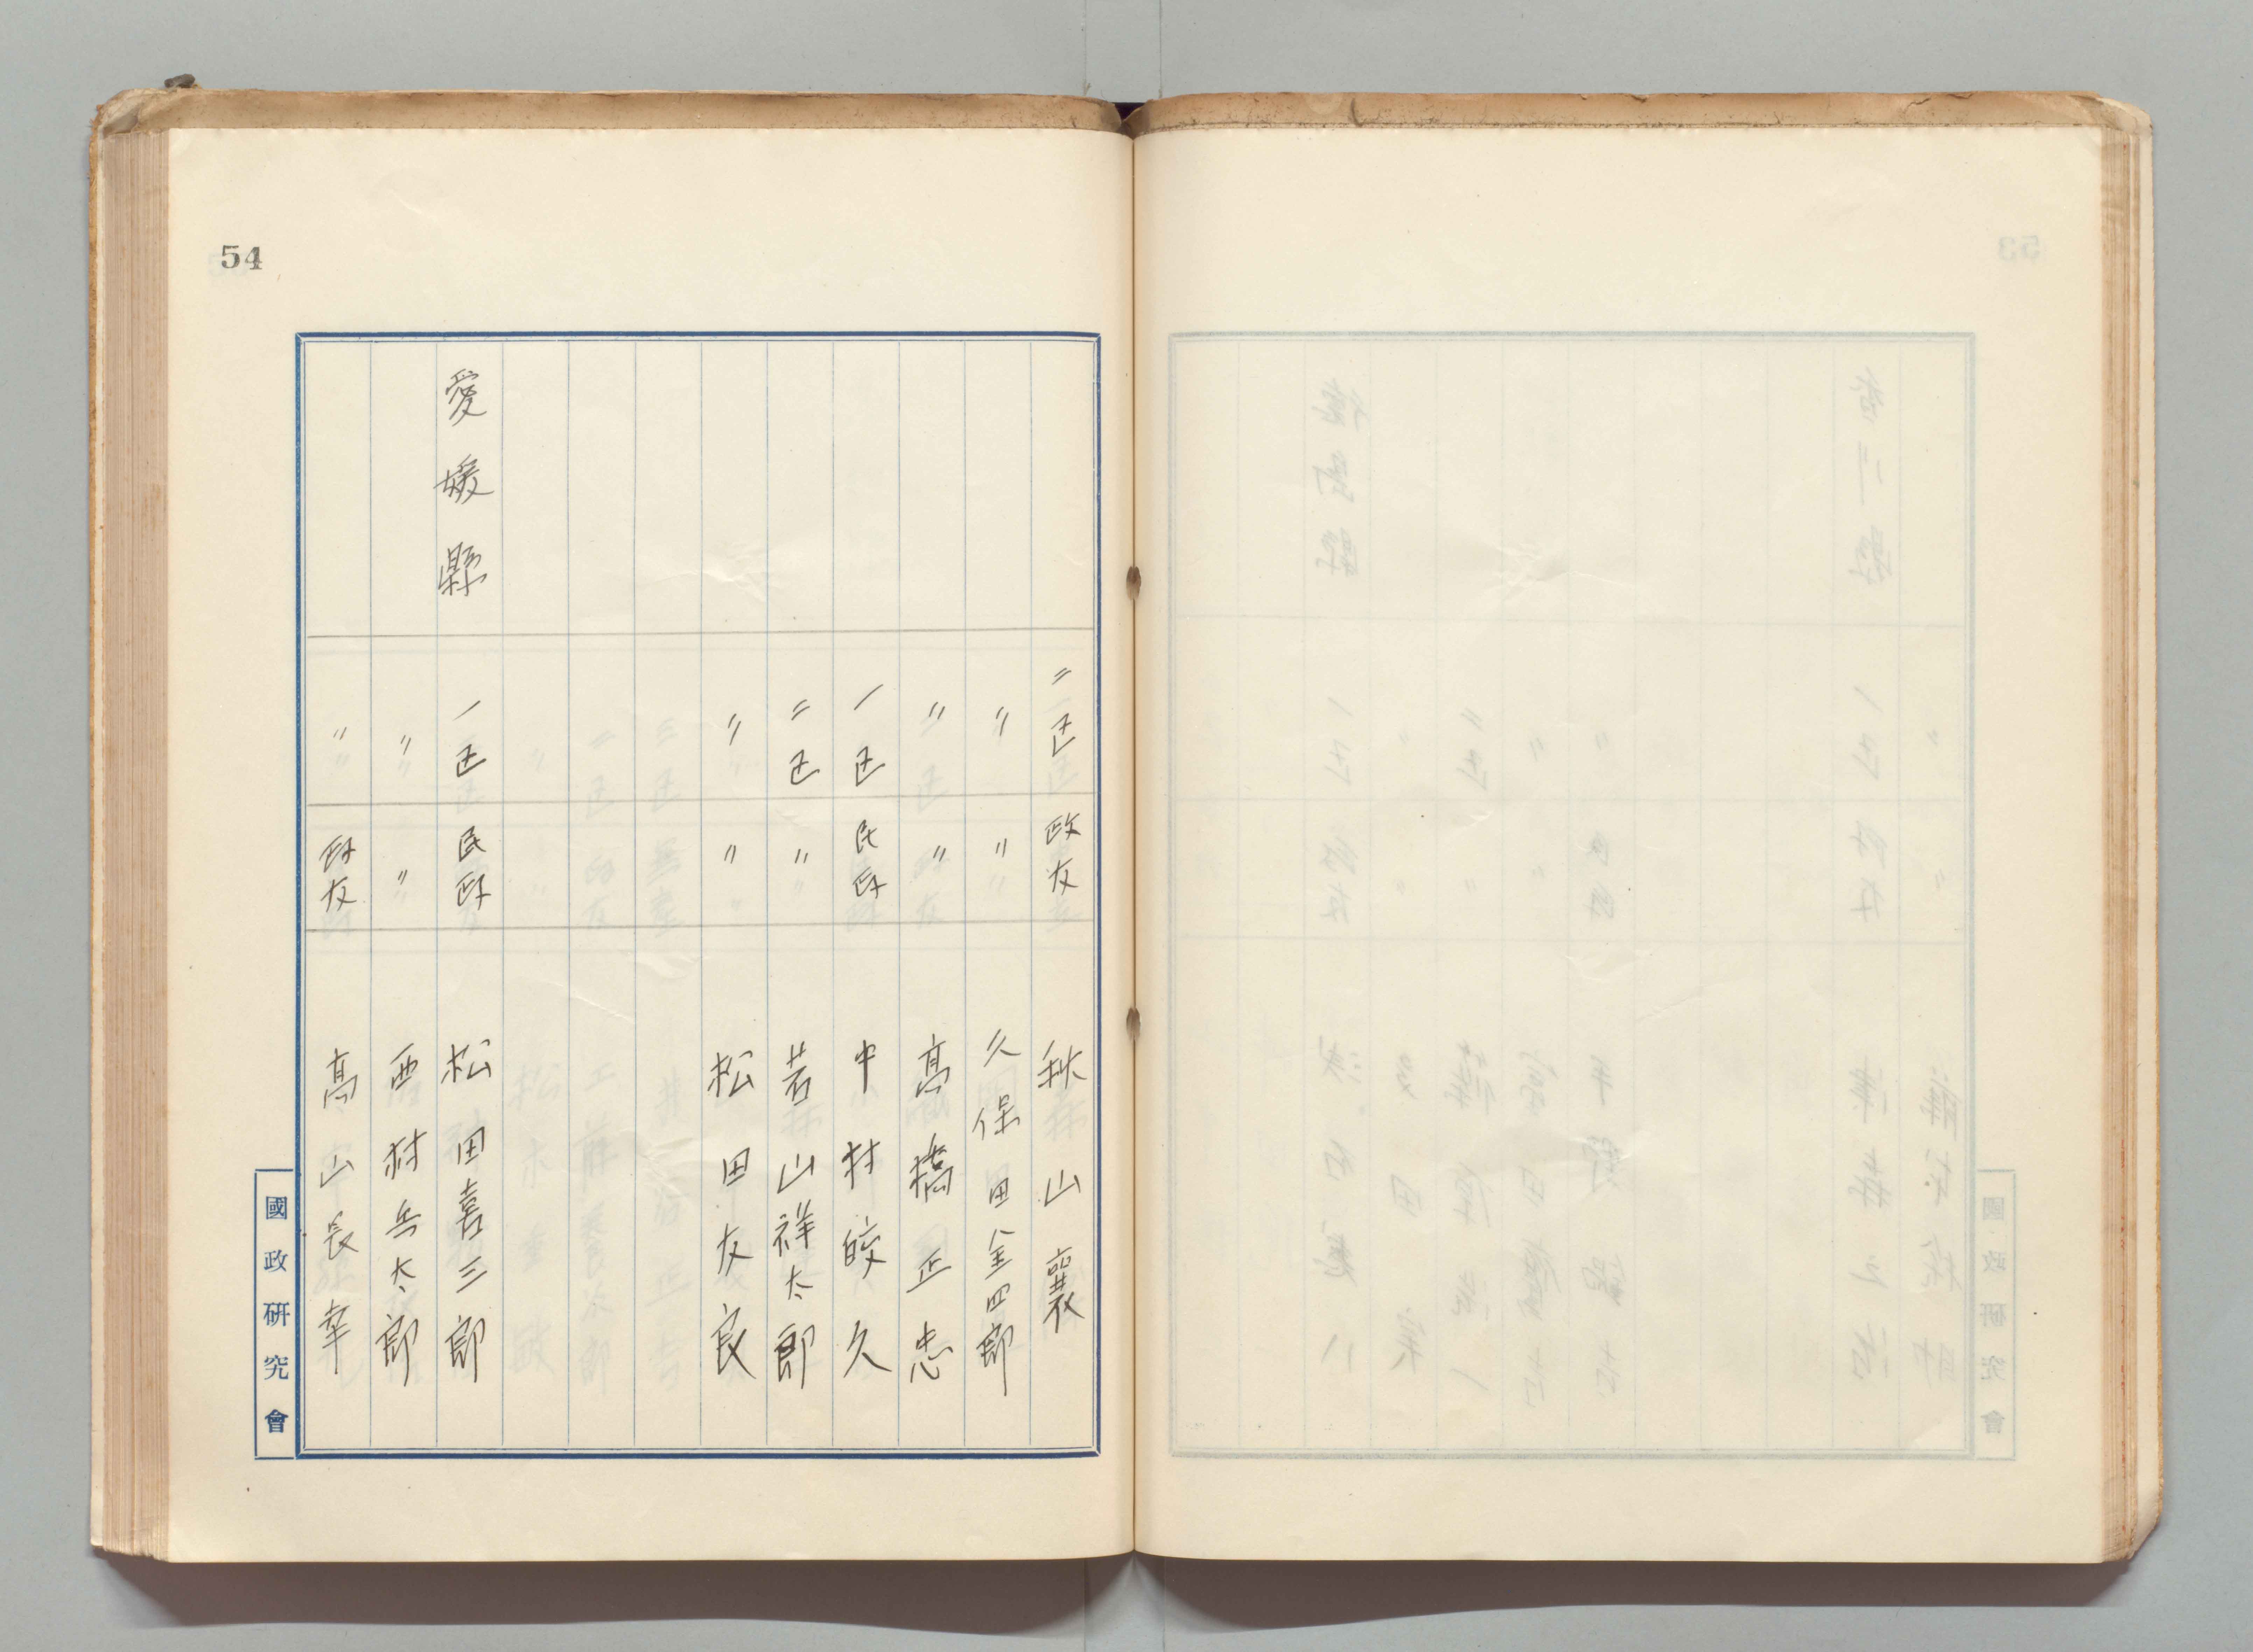 54
二区 政友 秋山襄
〃 〃 久保田金四郎
〃 〃 髙橋正忠
一区 民政 中村皎久
二区 〃 若山祥太郎
〃 〃 松田友良
愛媛縣 一区 民政 松田喜三郎
〃 〃 西村兵太郎
〃 政友 髙山長幸
國政研究會